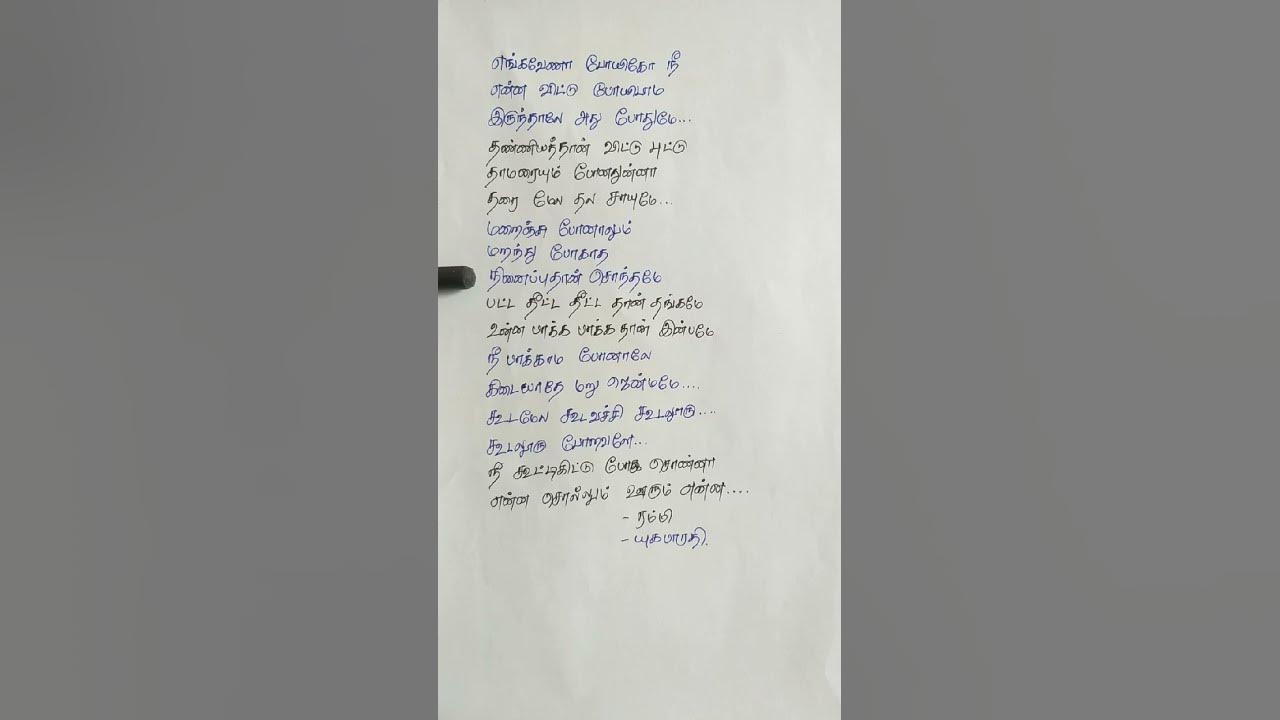 எங்கவேணா போயிகோ நீ
என்ன விட்டு போயிடாம
இருந்தாலே அது போதுமே...
தண்ணியத்தான் விட்டு புட்டு
தாமரையும் போனதுன்னா
தரை மேல தல சாயுமே...
மறைஞ்சு போனாலும்
மறந்து போகாத
நினைப்புதான் சொந்தமே
பட்ட தீட்ட தீட்ட தான் தங்கமே
உன்ன பாக்க பாக்க தான் இன்பமே
நீ பாக்காம போனாலே
கிடையாதே மறு ஜென்மமே....
கூடமேல கூடவச்சி கூடலூரு....
கூடலூரு போறவளே...
நீ கூட்டிகிட்டு போக சொன்னா
என்ன சொல்லும் ஊரும் என்ன....
- நம்மி
- யுகபாரதி.